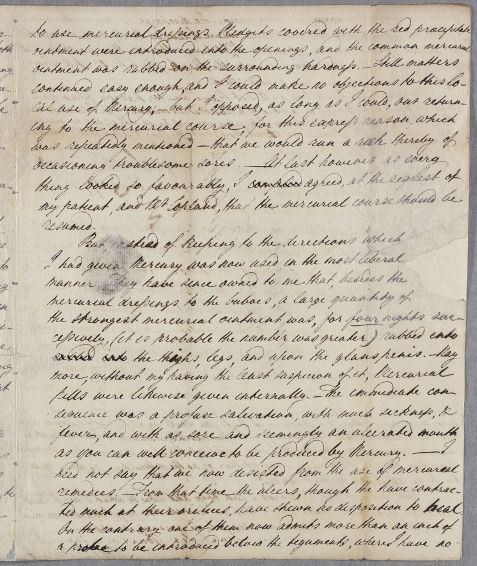 to use mercurial dressings. Plengits covered with the red precipitate
ointment were introduced into the openings, and the common mercurial
ointment was rubbed on the surrounding hardness. - Still matters
continued easy enough, and I could make no objections to this lo-
cal use of Mercury, - but I opposed, as long as I could, our return-
ing to the mercurial course, for this express reason, which
was repeatedly mentioned - that we would run a risk thereby of
occasioning troublesome sores. - At last however as every
thing looked so favourably, I agreed, at the request of
my patient, and Mr Copland, that the mercurial course should be
resumed.
But instead of keeping to the directions which
I had given Mercury was now used in the most liberal
manner. They have since owned to me that, besides the
mercurial dressings to the buboes, a large quantity of
the strongest mercurial ointment was, for four nights suc-
cessively, (it is probable the number was greater) rubbed into
the thighs, legs, and upon the glans penis. - Nay
more, without my having the least suspicion of it, Mercurial
pills were likewise given internally. - The immediate con-
sequence was a profuse salivation, with much sickness, &
fever, and with as sore and seemingly an ulcerated mouth
as you can well conceive to be produced by Mercury. - I
need not say that we now desisted from the use of mercurial
remedies. - From that time the ulcers, though the have contrac-
ted much at their orifices, have shewn no disposition to heal
On the contrary one of them now admits more than an inch of
a probe to be introduced below the teguments, where I have no